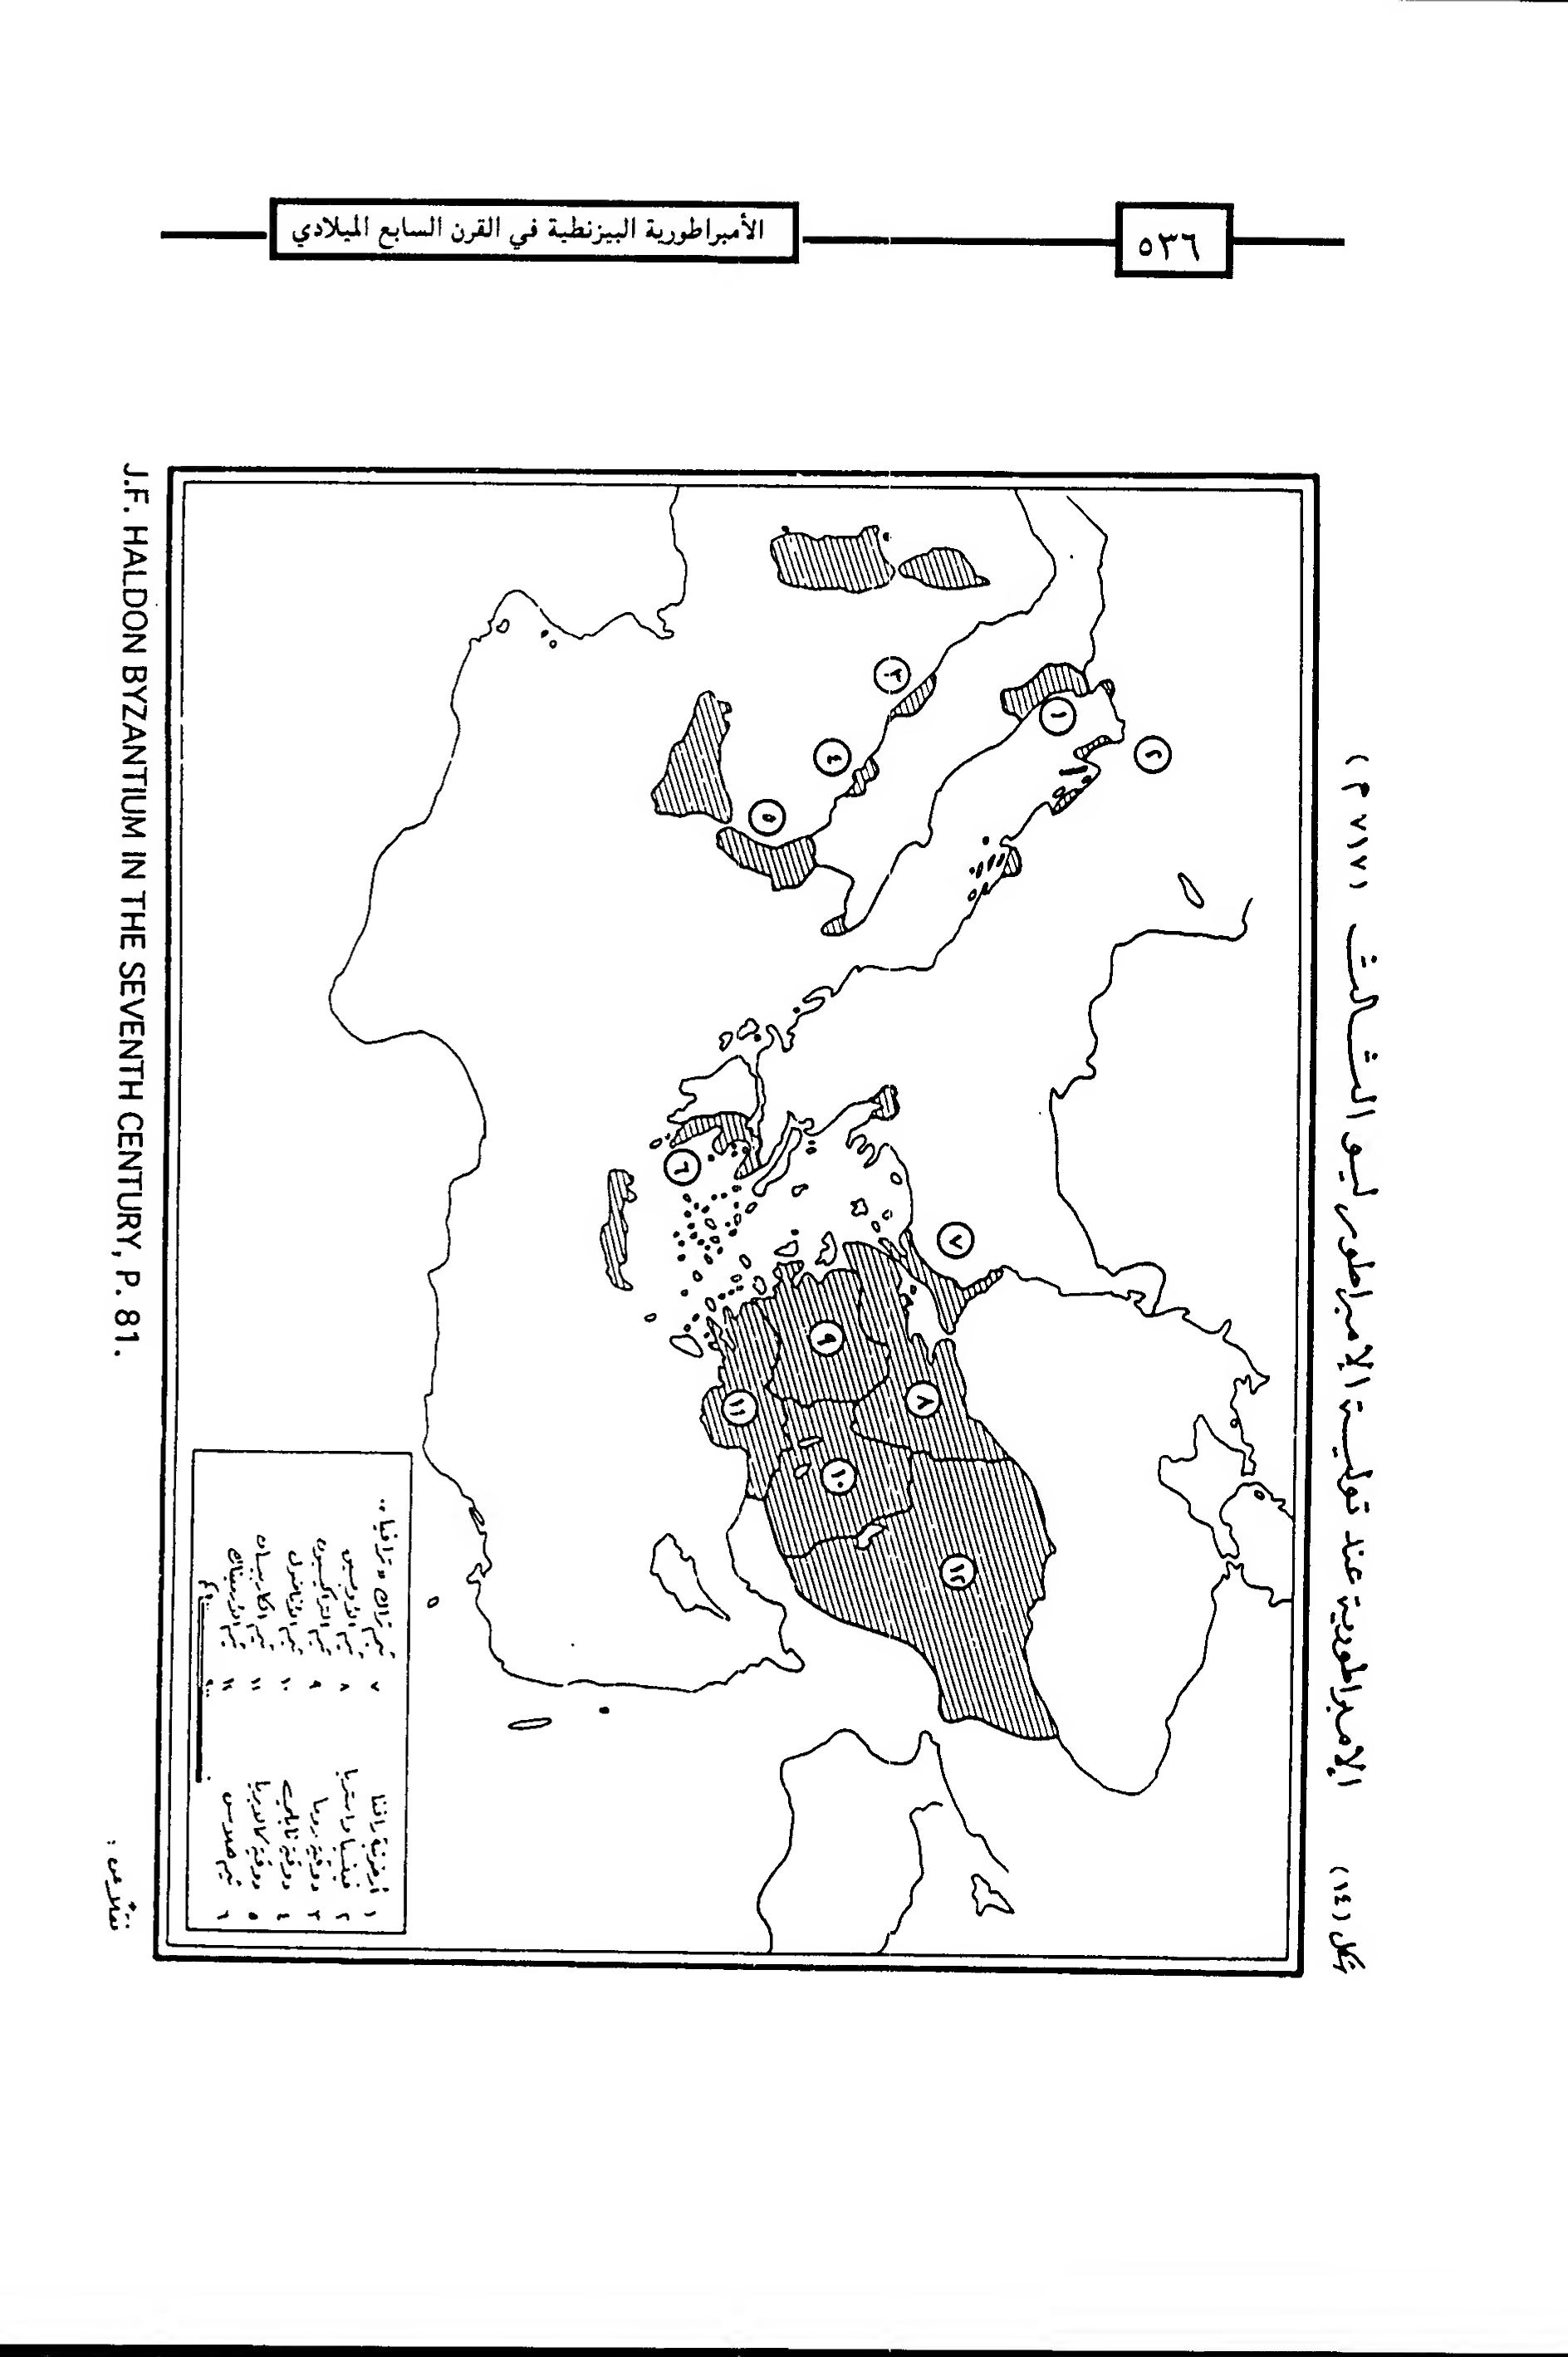 ٥٣٦
الأمبراطورية البيزنطية في القرن السابع الميلادي
شكل (١٤)
الإمبراطورية عند تولية الإمبراطور ليو الثالث (٧١٧ م)
١
٢
٣
٤
٥
٦
٧
٨
٩
١٠
١١
١٢
١ أرخونية رافنا
٢ فينسيا واستريا
٣ دوقية روما
٤ دوقية نابلي
٥ دوقية كالابريا
٦ ثيم هيلاس
٧ ثيم تراك « تراقيا »
٨ ثيم
٩ ثيم
١٠ ثيم الأناضول
١١ ثيم
١٢ ثيم الأرمنياك
نقلاً عن :
J.F. HALDON BYZANTIUM IN THE SEVENTH CENTURY, P. 81.